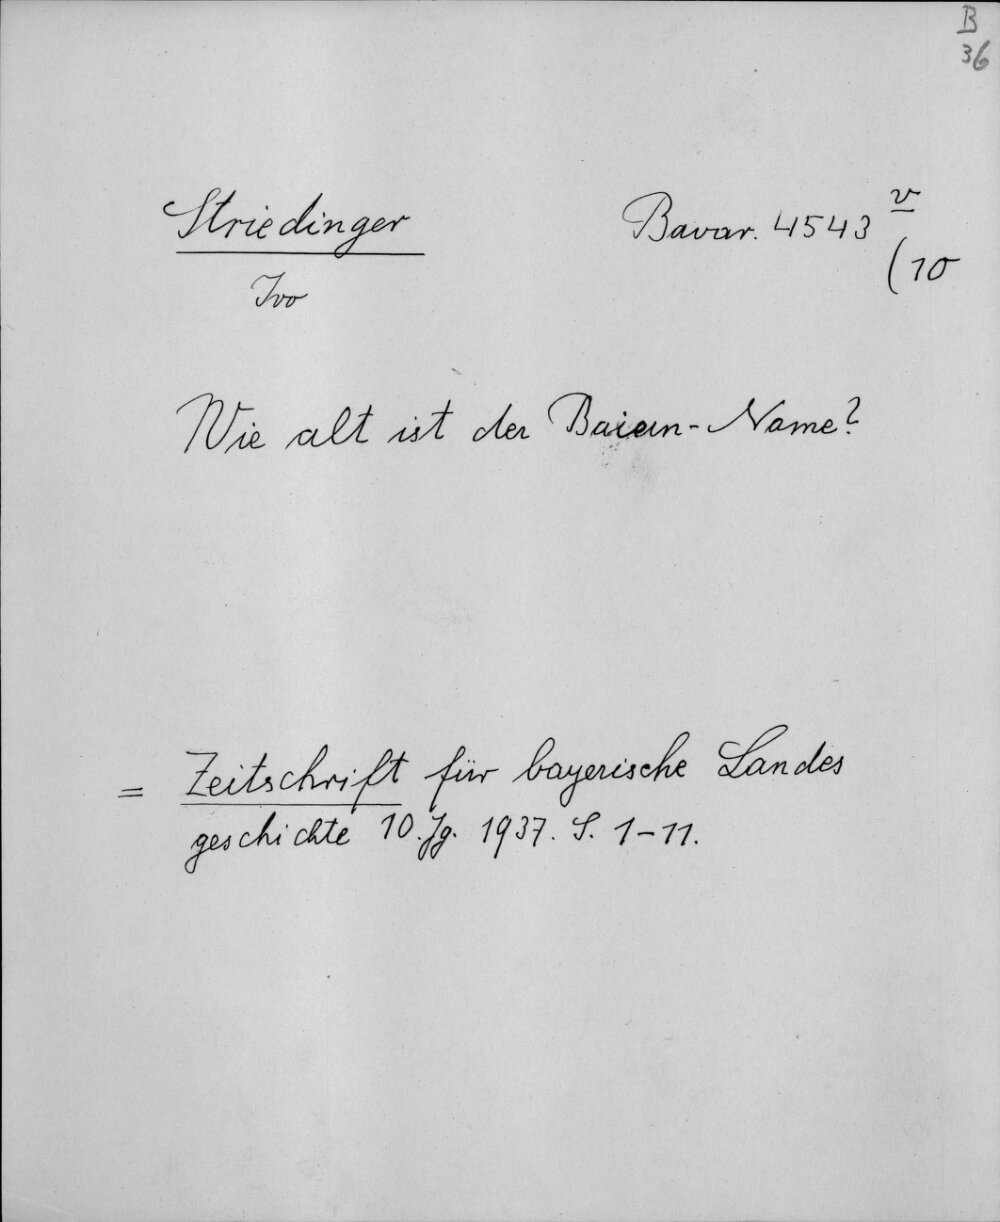 B
36
Striedinger
Ivo
Bavar. 4543 v
(10
Wie alt ist der Baiern-Name?
= Zeitschrift für bayerische Landes
geschichte 10. Jg. 1937. S. 1-11.